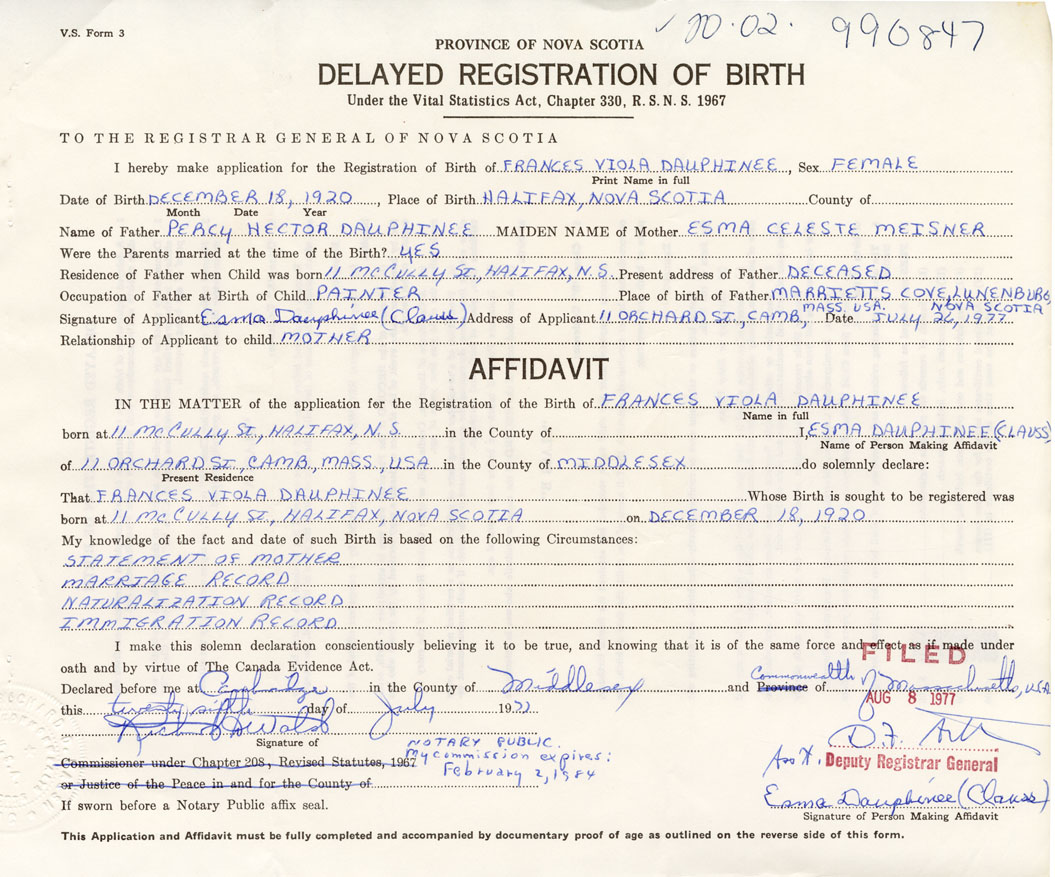 V.S. Form 3
20.02. 990847
PROVINCE OF NOVA SCOTIA
DELAYED REGISTRATION OF BIRTH
Under the Vital Statistics Act, Chapter 330, R. S. N. S. 1967
TO THE REGISTRAR GENERAL OF NOVA SCOTIA
I hereby make application for the Registration of Birth of FRANCES VIOLA DAUPHINEE, Sex FEMALE
Print Name in full
Date of Birth DECEMBER 18, 1920, Place of Birth HALIFAX, NOVA SCOTIA County of
Month Date Year
Name of Father PERCY HECTOR DAUPHINEE MAIDEN NAME of Mother ESMA CELESTE MEISNER
Were the Parents married at the time of the Birth? YES
Residence of Father when Child was born 11 McCULLY ST., HALIFAX, N.S. Present address of Father DECEASED
Occupation of Father at Birth of Child PAINTER Place of birth of Father MARRIETTS COVE, LUNENBURG,
MASS. USA. NOVA SCOTIA
Signature of Applicant Esma Dauphinee (Clauss) Address of Applicant 11 ORCHARD ST., CAMB., Date JULY 26, 1977
Relationship of Applicant to child MOTHER
AFFIDAVIT
IN THE MATTER of the application for the Registration of the Birth of FRANCES VIOLA DAUPHINEE
Name in full
born at 11 McCULLY ST., HALIFAX, N.S. in the County of I, ESMA DAUPHINEE (CLAUSS)
Name of Person Making Affidavit
of 11 ORCHARD ST., CAMB., MASS., USA in the County of MIDDLESEX do solemnly declare:
Present Residence
That FRANCES VIOLA DAUPHINEE Whose Birth is sought to be registered was
born at 11 McCULLY ST., HALIFAX, NOVA SCOTIA on DECEMBER 18, 1920
My knowledge of the fact and date of such Birth is based on the following Circumstances:
STATEMENT OF MOTHER
MARRIAGE RECORD
NATURALIZATION RECORD
IMMIGRATION RECORD
I make this solemn declaration conscientiously believing it to be true, and knowing that it is of the same force and effect as if made under
FILED
oath and by virtue of The Canada Evidence Act.
Commonwealth
Declared before me at Cambridge in the County of Middlesex and Province of of Massachusetts, USA
AUG 8 1977
this twenty sixth day of July 1977
Signature of
NOTARY PUBLIC.
Commissioner under Chapter 208, Revised Statutes, 1967 My commission expires:
February 2, 1984
Ass't. Deputy Registrar General
or Justice of the Peace in and for the County of
Esma Dauphinee (Clauss)
If sworn before a Notary Public affix seal.
Signature of Person Making Affidavit
This Application and Affidavit must be fully completed and accompanied by documentary proof of age as outlined on the reverse side of this form.